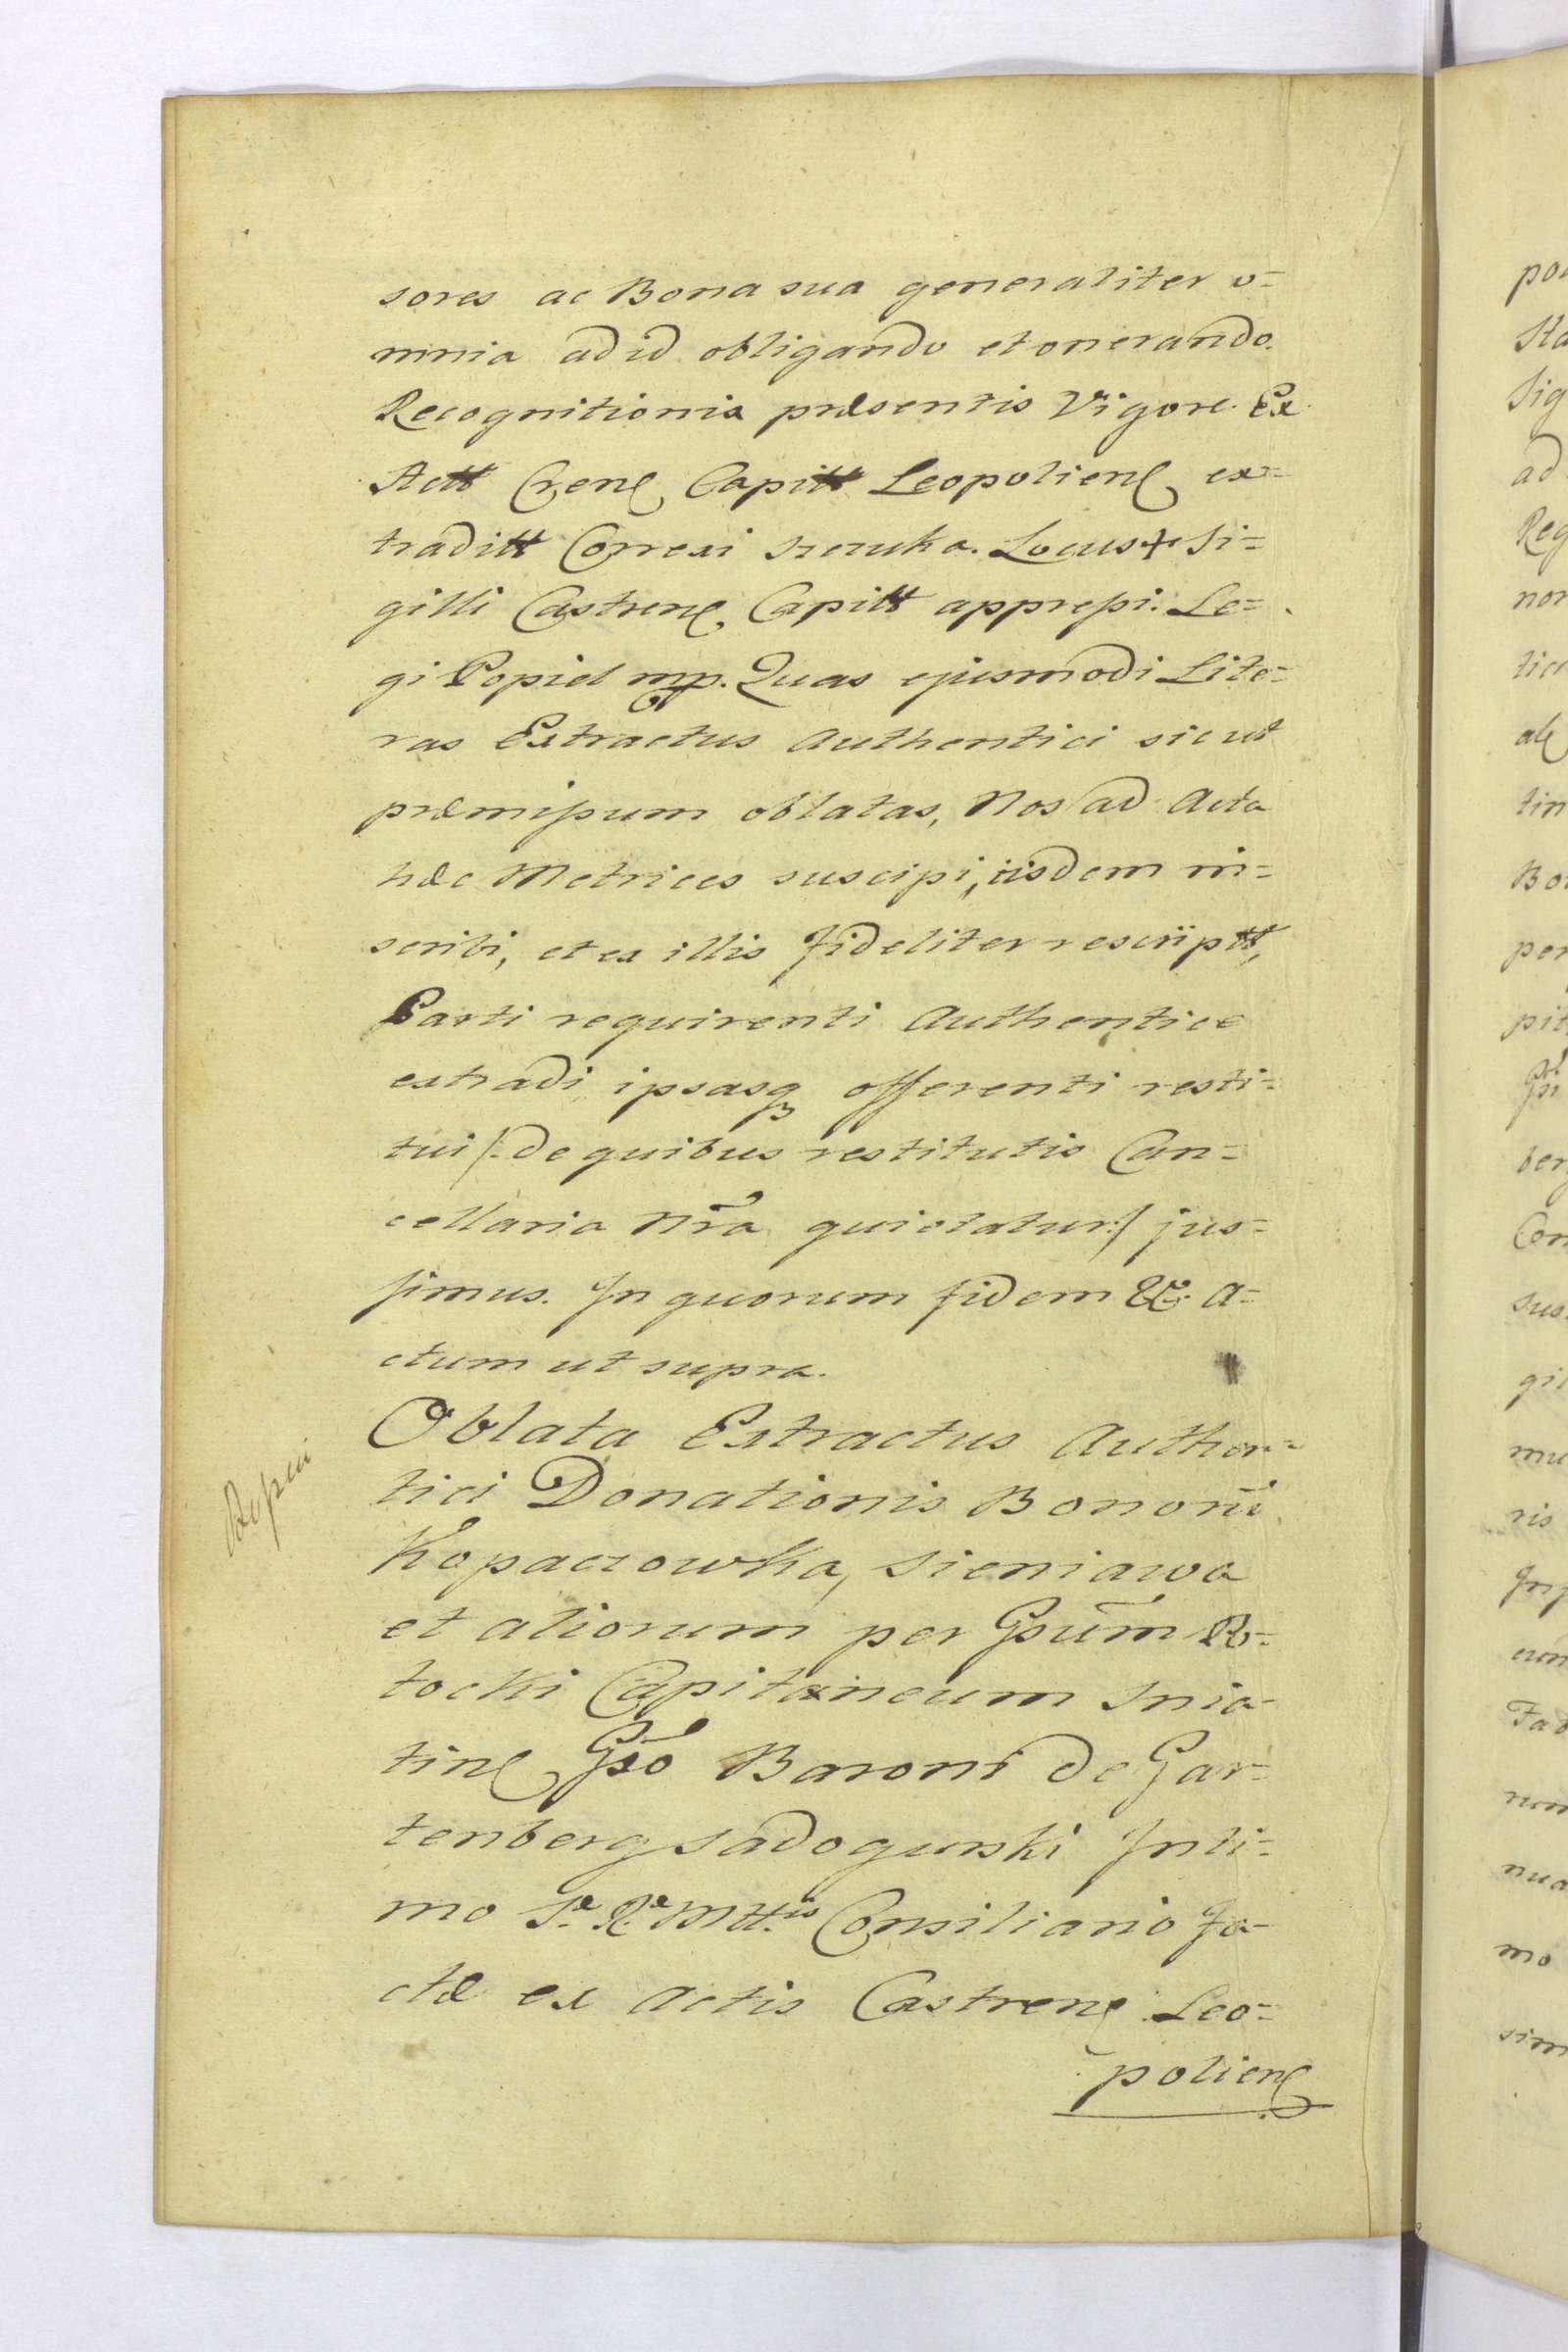 sores ac Bona sua generaliter o=
mnia ad id obligando et onerando.
Recognitionis præsentis Vigore. Ex
Actt Crens Capitt Leopoliens ex=
traditt Correxi Szczuka. Locus + Si=
gilli Castrens Capitt appressi. Le=
gi Popiel mp. Quas ejusmodi Lite=
ras Extractus Authentici sicut
præmissum oblatas, Nos ad Acta
hæc Metrices suscipi, iisdem in=
scribi, et ex illis fideliter rescriptt,
Parti requirenti Authentice
extradi ipsasq offerenti resti=
tui /: de quibus restitutis Can=
cellaria Nrã quietatur :/ jus=
simus. In quorum fidem &c. A=
ctum ut supra.
Oblata Extractus Authen=
tici Donationis Bonorũ
Kopaczowka, Sieniawa
et aliorum per Gsum Po=
tocki Capitaneum Snia=
tins Gso Baroni de Gar=
tenberg Sadogurski Inti=
mo S.æ R.æ Mtt.is Consiliario fa=
ctæ ex Actis Castrens Leo=
poliens